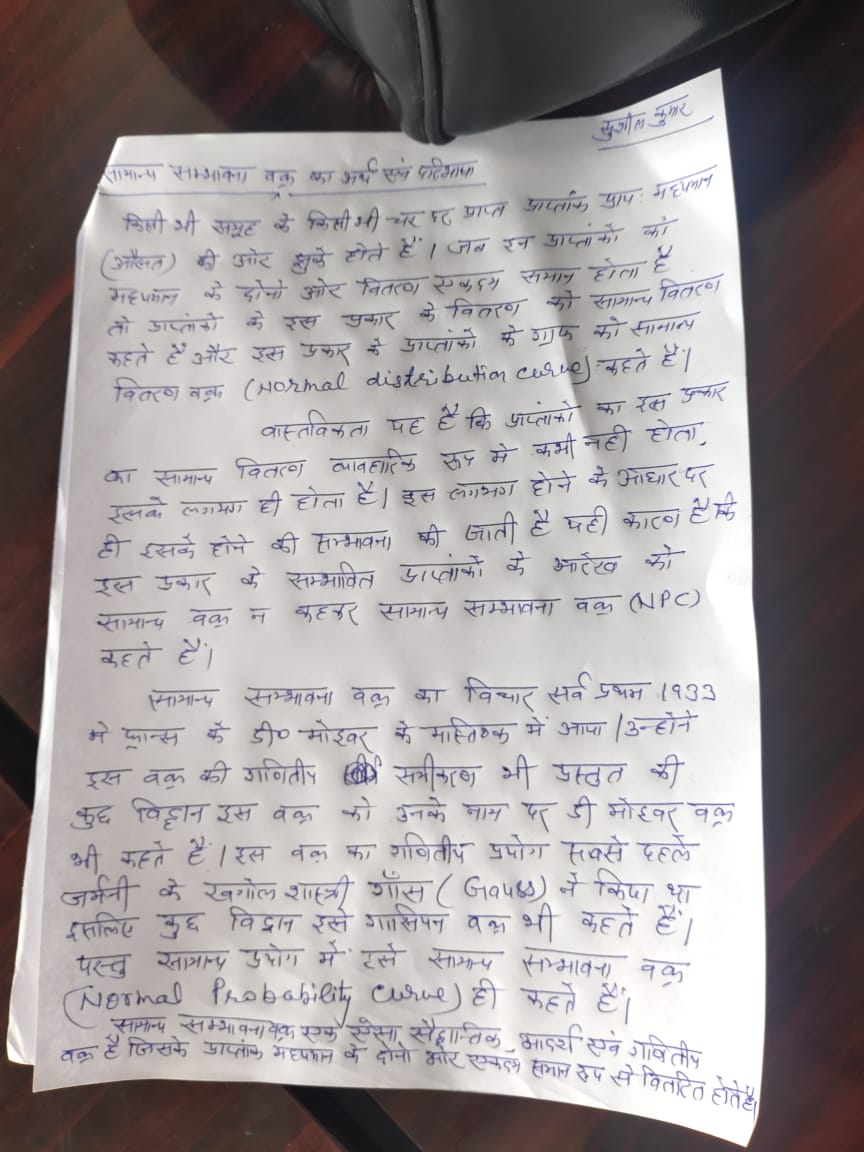 सुशील कुमार
सामान्य सम्भावना वक्र का अर्थ एवं परिभाषा
किसी भी समूह के किसी भी चर पर प्राप्त प्राप्तांक प्राय: मध्यमान
(औसत) की ओर झुके होते हैं। जब इन प्राप्तांकों का
मध्यमान के दोनो ओर वितरण एकदम समान होता है
तो प्राप्तांको के इस प्रकार के वितरण को सामान्य वितरण
कहते है और इस प्रकार के प्राप्तांको के ग्राफ को सामान्य
वितरण वक्र (Normal distribution curve) कहते हैं।
वास्तविकता यह है कि प्राप्तांको का इस प्रकार
का सामान्य वितरण व्यावहारिक रूप मे कभी नही होता,
इसके लगभग ही होता है। इस लगभग होने के आधार पर
ही इसके होने की सम्भावना की जाती है यही कारण है कि
इस प्रकार के सम्भावित प्राप्तांको के आरेख को
सामान्य वक्र न कहकर सामान्य सम्भावना वक्र (NPC)
कहते हैं।
सामान्य सम्भावना वक्र का विचार सर्व प्रथम 1933
मे फ्रान्स के डी० मोइवर के मास्तिष्क में आया। उन्होने
इस वक्र की गणितीय समीकरण भी प्रस्तुत की
कुछ विद्वान इस वक्र को उनके नाम पर डी मोइवर वक्र
भी कहते हैं। इस वक्र का गणितीय प्रयोग सबसे पहले
जर्मनी के खगोल शास्त्री गॉस (Gauss) ने किया था
इसलिए कुछ विद्वान इसे गासियन वक्र भी कहते हैं।
परन्तु सामान्य प्रयोग में इसे सामान्य सम्भावना वक्र
(Normal Probability Curve) ही कहते हैं।
सामान्य सम्भावना वक्र एक ऐसा सैद्धान्तिक, आदर्श एवं गणितीय
वक्र है जिसके प्राप्तांक मध्यमान के दोनो ओर एकदम समान रूप से वितरित होते है।